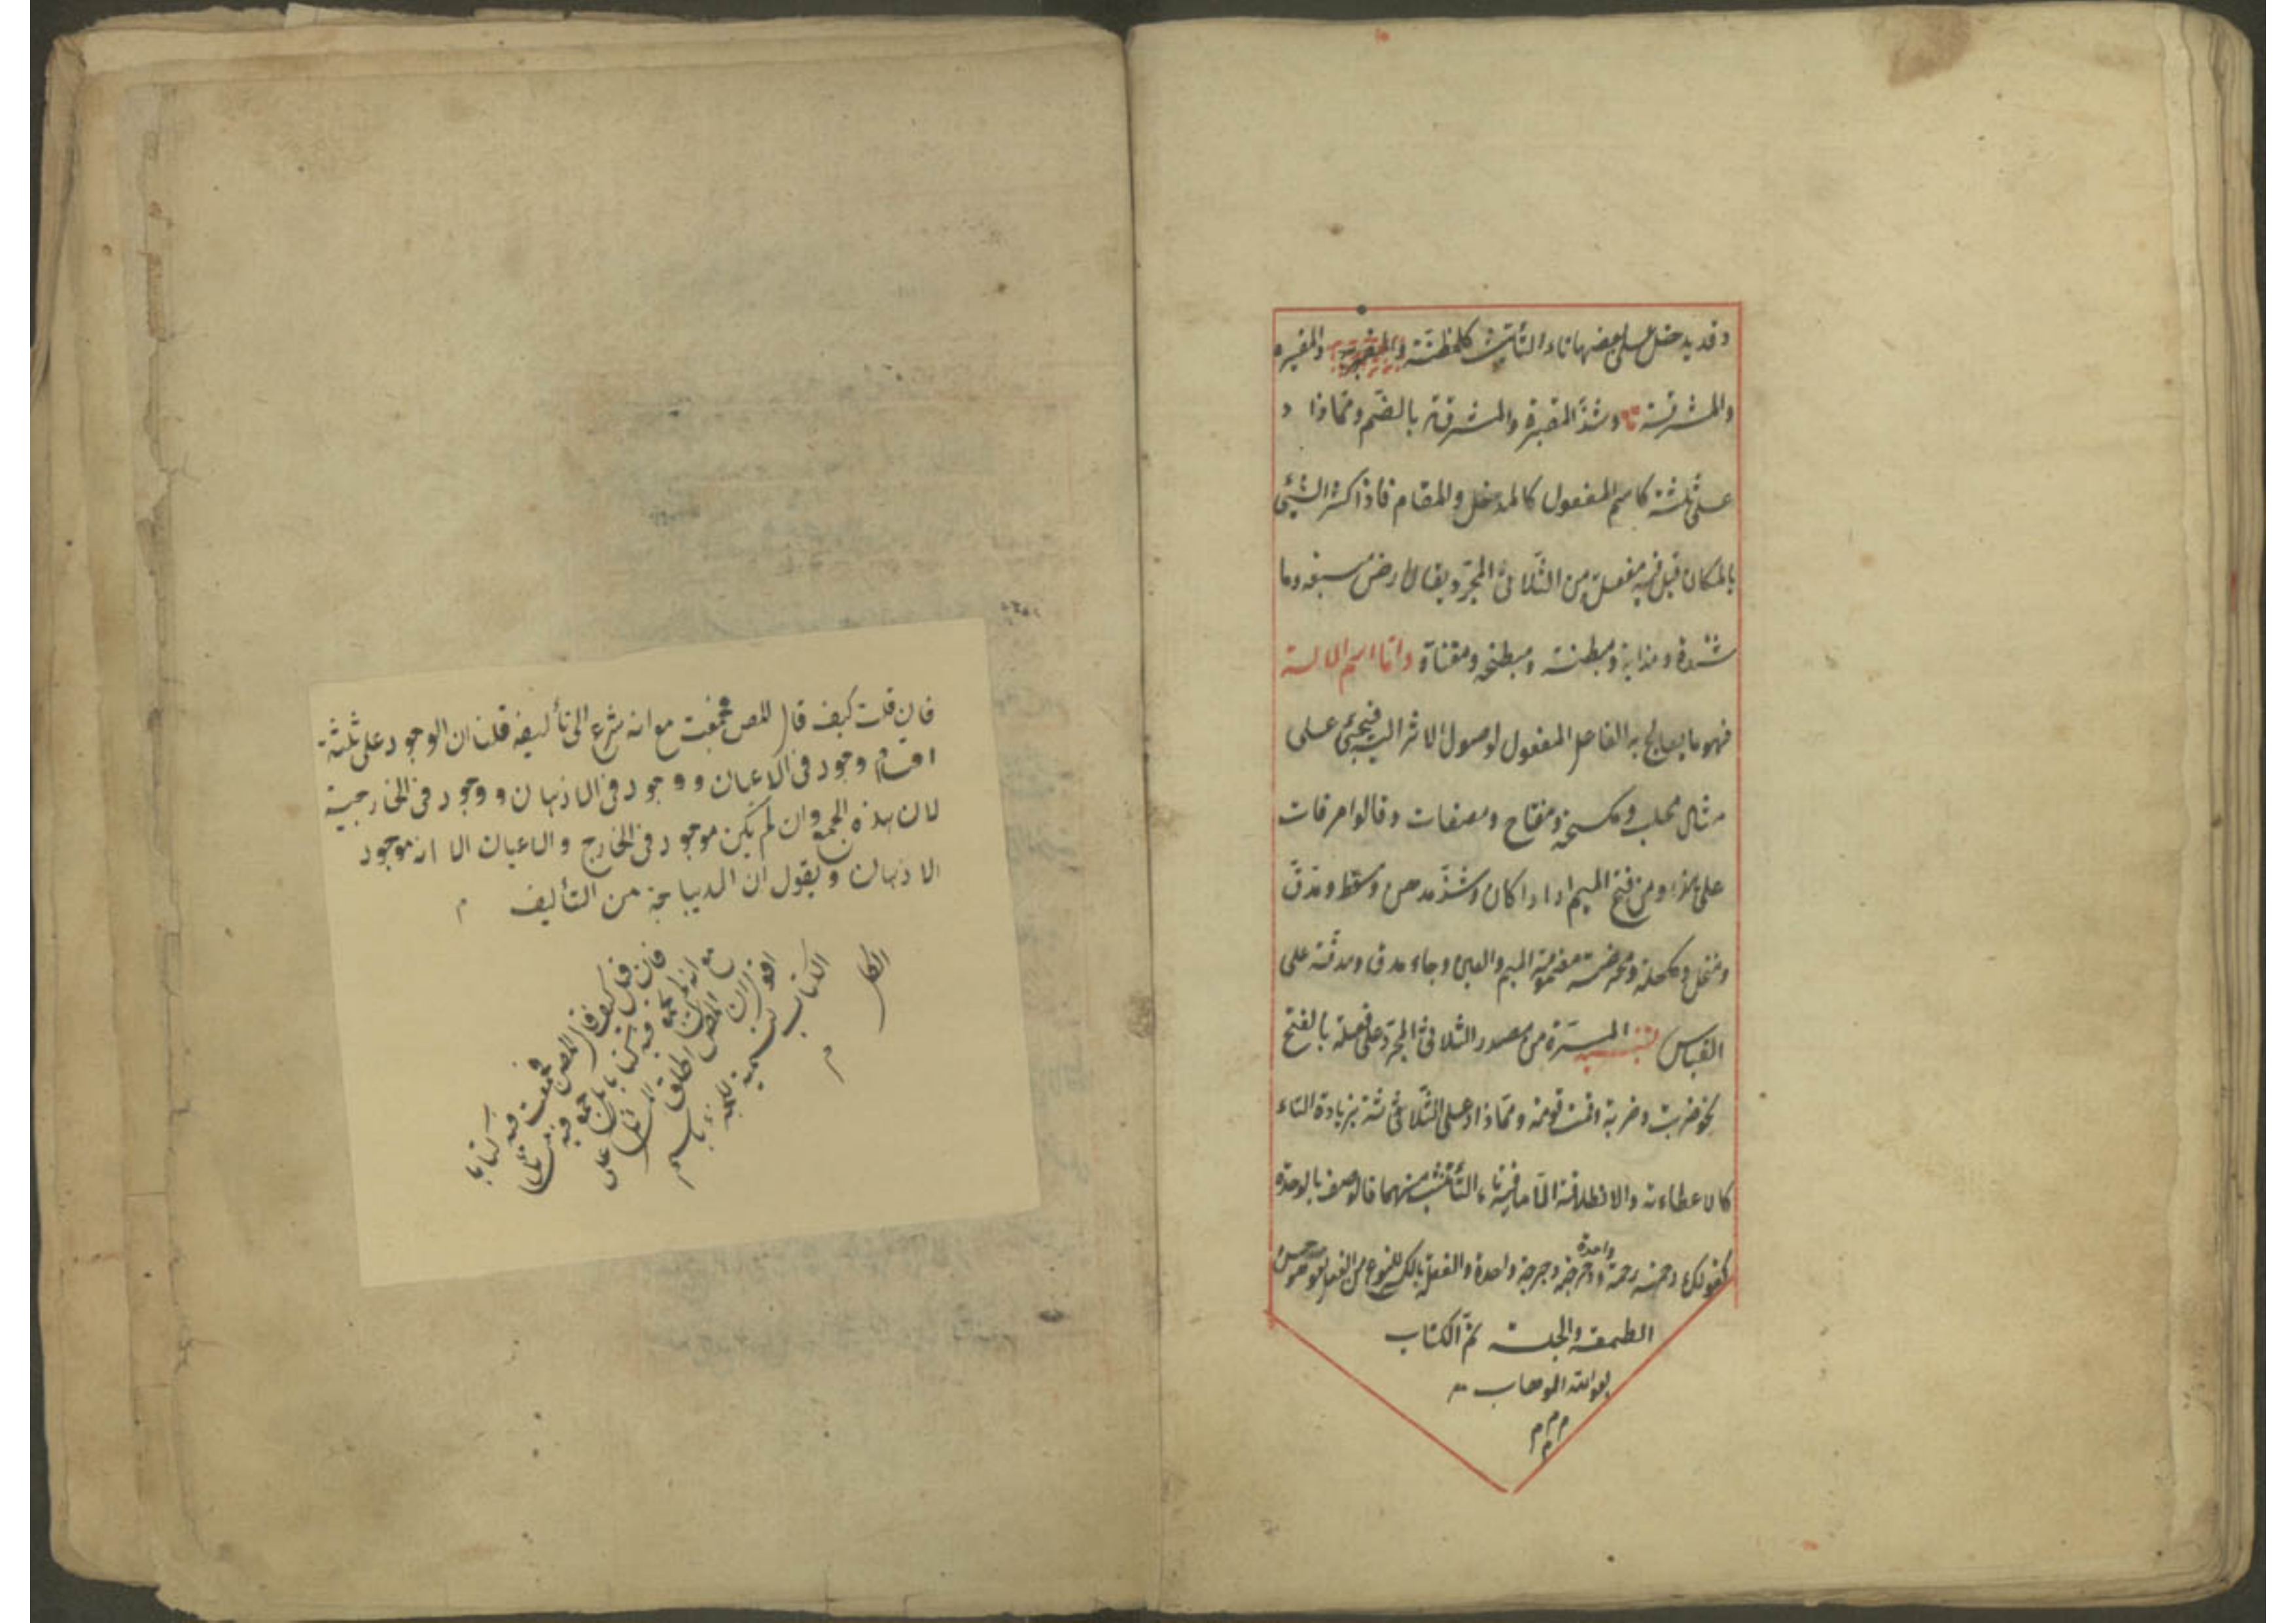 وقد يدخل على بعضها تاء التأنيث كالمظنة والمقبرة
والمشرقة وشذ المقبرة والمشرقة بالضم ومما زاد
على ثلثة كاسم المفعول كالمدخل والمقام فاذا كثر الشئ
بالمكان قيل فيه مفعلة من الثلاثى المجرد يقال ارض مسبعة وما
ومذابة ومبطخة ومقثاة واما اسم الالة
فهو ما يعالج به الفاعل المفعول لوصول الاثر اليه فيجئ على
مثال محلب ومكسحة ومفتاح ومصفات وقالوا مرقات
على هذا ومن فتح الميم اراد المكان وشذ مدهن ومسعط ومدق
ومنخل ومكحلة ومحرضة مضمومة الميم والعين وجاء مدق ومدقة على
القياس تنبيه المرة من مصدر الثلاثى المجرد على فعلة بالفتح
نحو ضربت ضربة وقمت قومة ومما زاد على الثلاثى بزيادة التاء
كالاعطاءة والانطلاقة الا ما فيه تاء التأنيث منهما فالوصف بالوحدة
كقولك رحمته رحمة واحدة ودحرجته دحرجة واحدة والفعلة بالكسر للنوع من الفعل تقول هو حسن
الطعمة والجلسة تم الكتاب
بعون الله الوهاب
فان قلت كيف قال المص فجمعت مع انه شرع الى تأليفه قلنا ان الوجود على ثلثة
اقسام وجود فى الاعيان ووجود فى الاذهان ووجود فى الخارجية
لان هذه الجمع وان لم يكن موجود فى الخارج والاعيان الا انه موجود
الاذهان ويقول ان الديباجة من التأليف م
فان قيل كيف قال المصن فجمعت فيه كتابا
مع انه لم يجمع فيه كتابا بل جمع فيه مسائل
اقول ان المص اطلق المسائل على
الكتاب تسمية للجزء باسم
الكل م